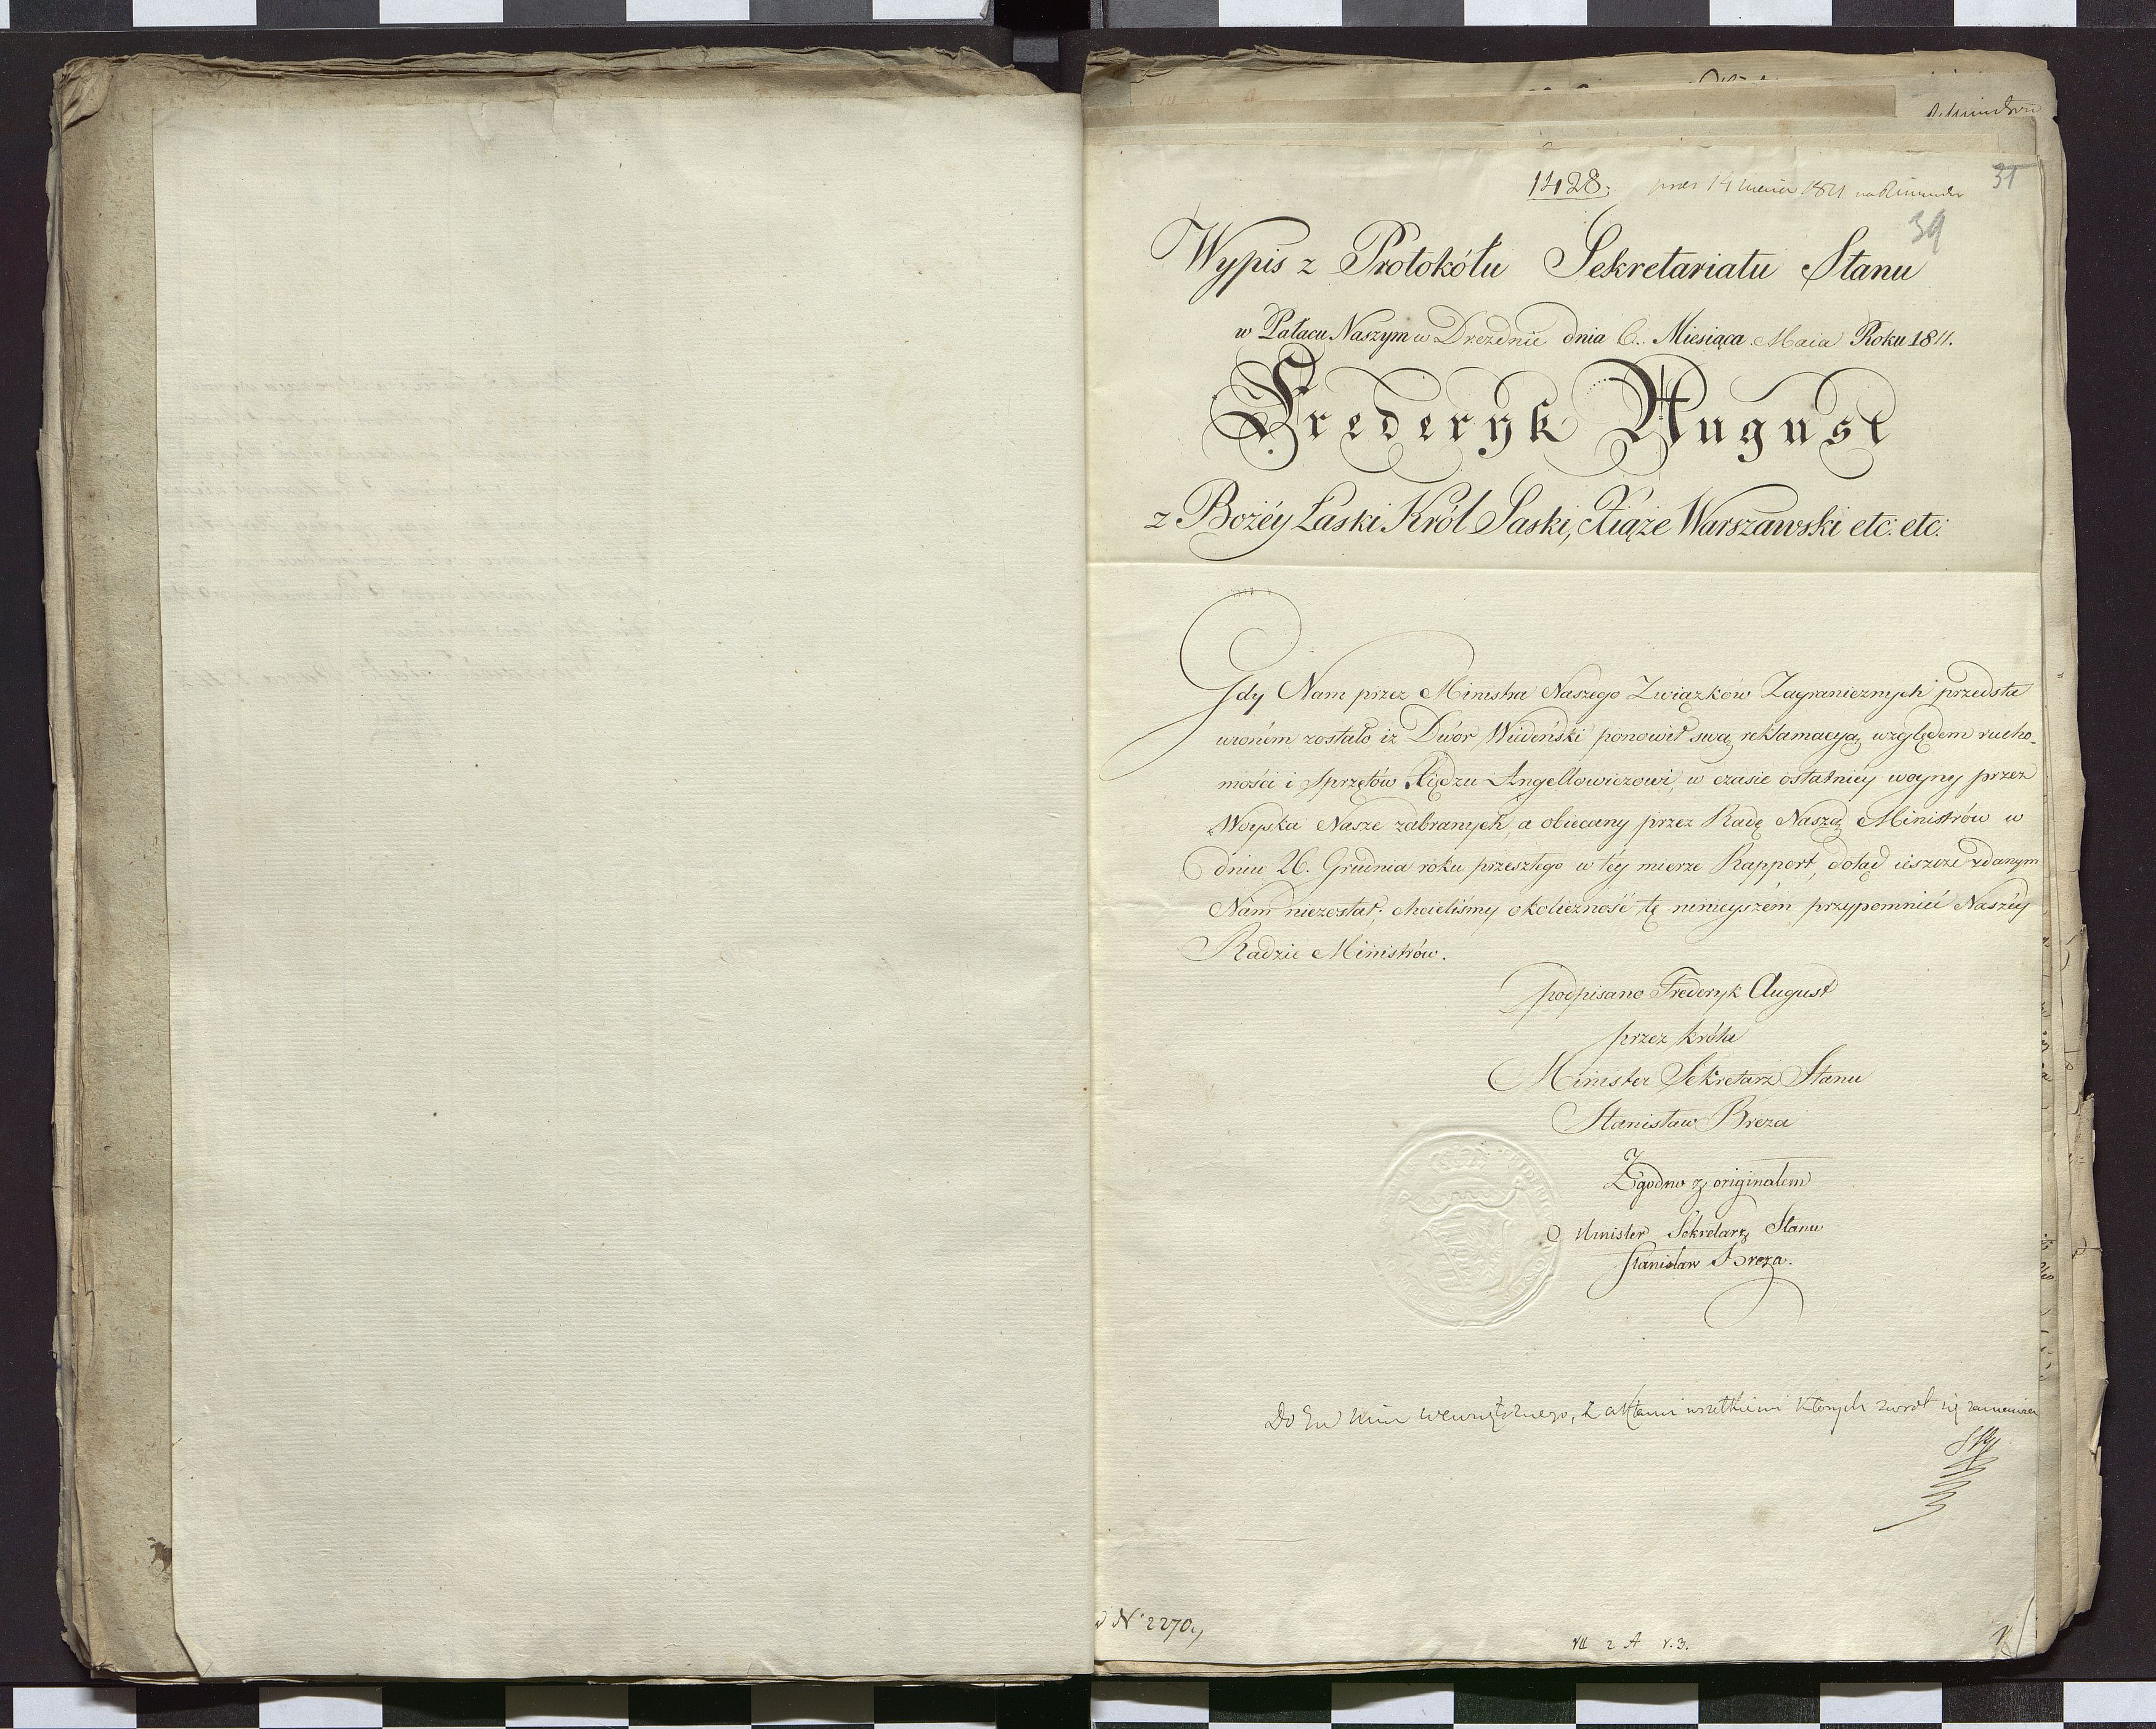 1428.
31
39
Wypis z Protokółu Sekretariatu Stanu
w Pałacu Naszym w Dreźdnie dnia 6. Miesiąca Maia Roku 1811.
Frederyk August
z Bożéy Łaski Król Saski, Xiąże Warszawski etc: etc:
Gdy Nam przez Ministra Naszego Związków Zagranicznych przedsta
wioném zostało iż Dwór Wiedeński ponowił swą reklamacyą względem rucho-
mości i Sprzętów Xiędzu Angellowiczowi, w czasie ostatniéy woyny przez
Woyska Nasze zabranych, a obiecany przez Radę Naszą Ministrów w
dniu 26. Grudnia roku przeszłego w téy mierze Rapport, dotąd ieszcze zdanym
Nam niezostał; chcieliśmy okoliczność tę ninieyszém przypomnieć Naszéy
Radzie Ministrów.
podpisano Frederyk August
przez króla
Minister Sekretarz Stanu
Stanisław Breza
Zgodno z originałem
Minister Sekretarz Stanu
Stanisław Breza.
Do Min wewnętrznego, z aktami wszelkiemi których zwrot się
N. 2270.
VII 2 A v. 3.